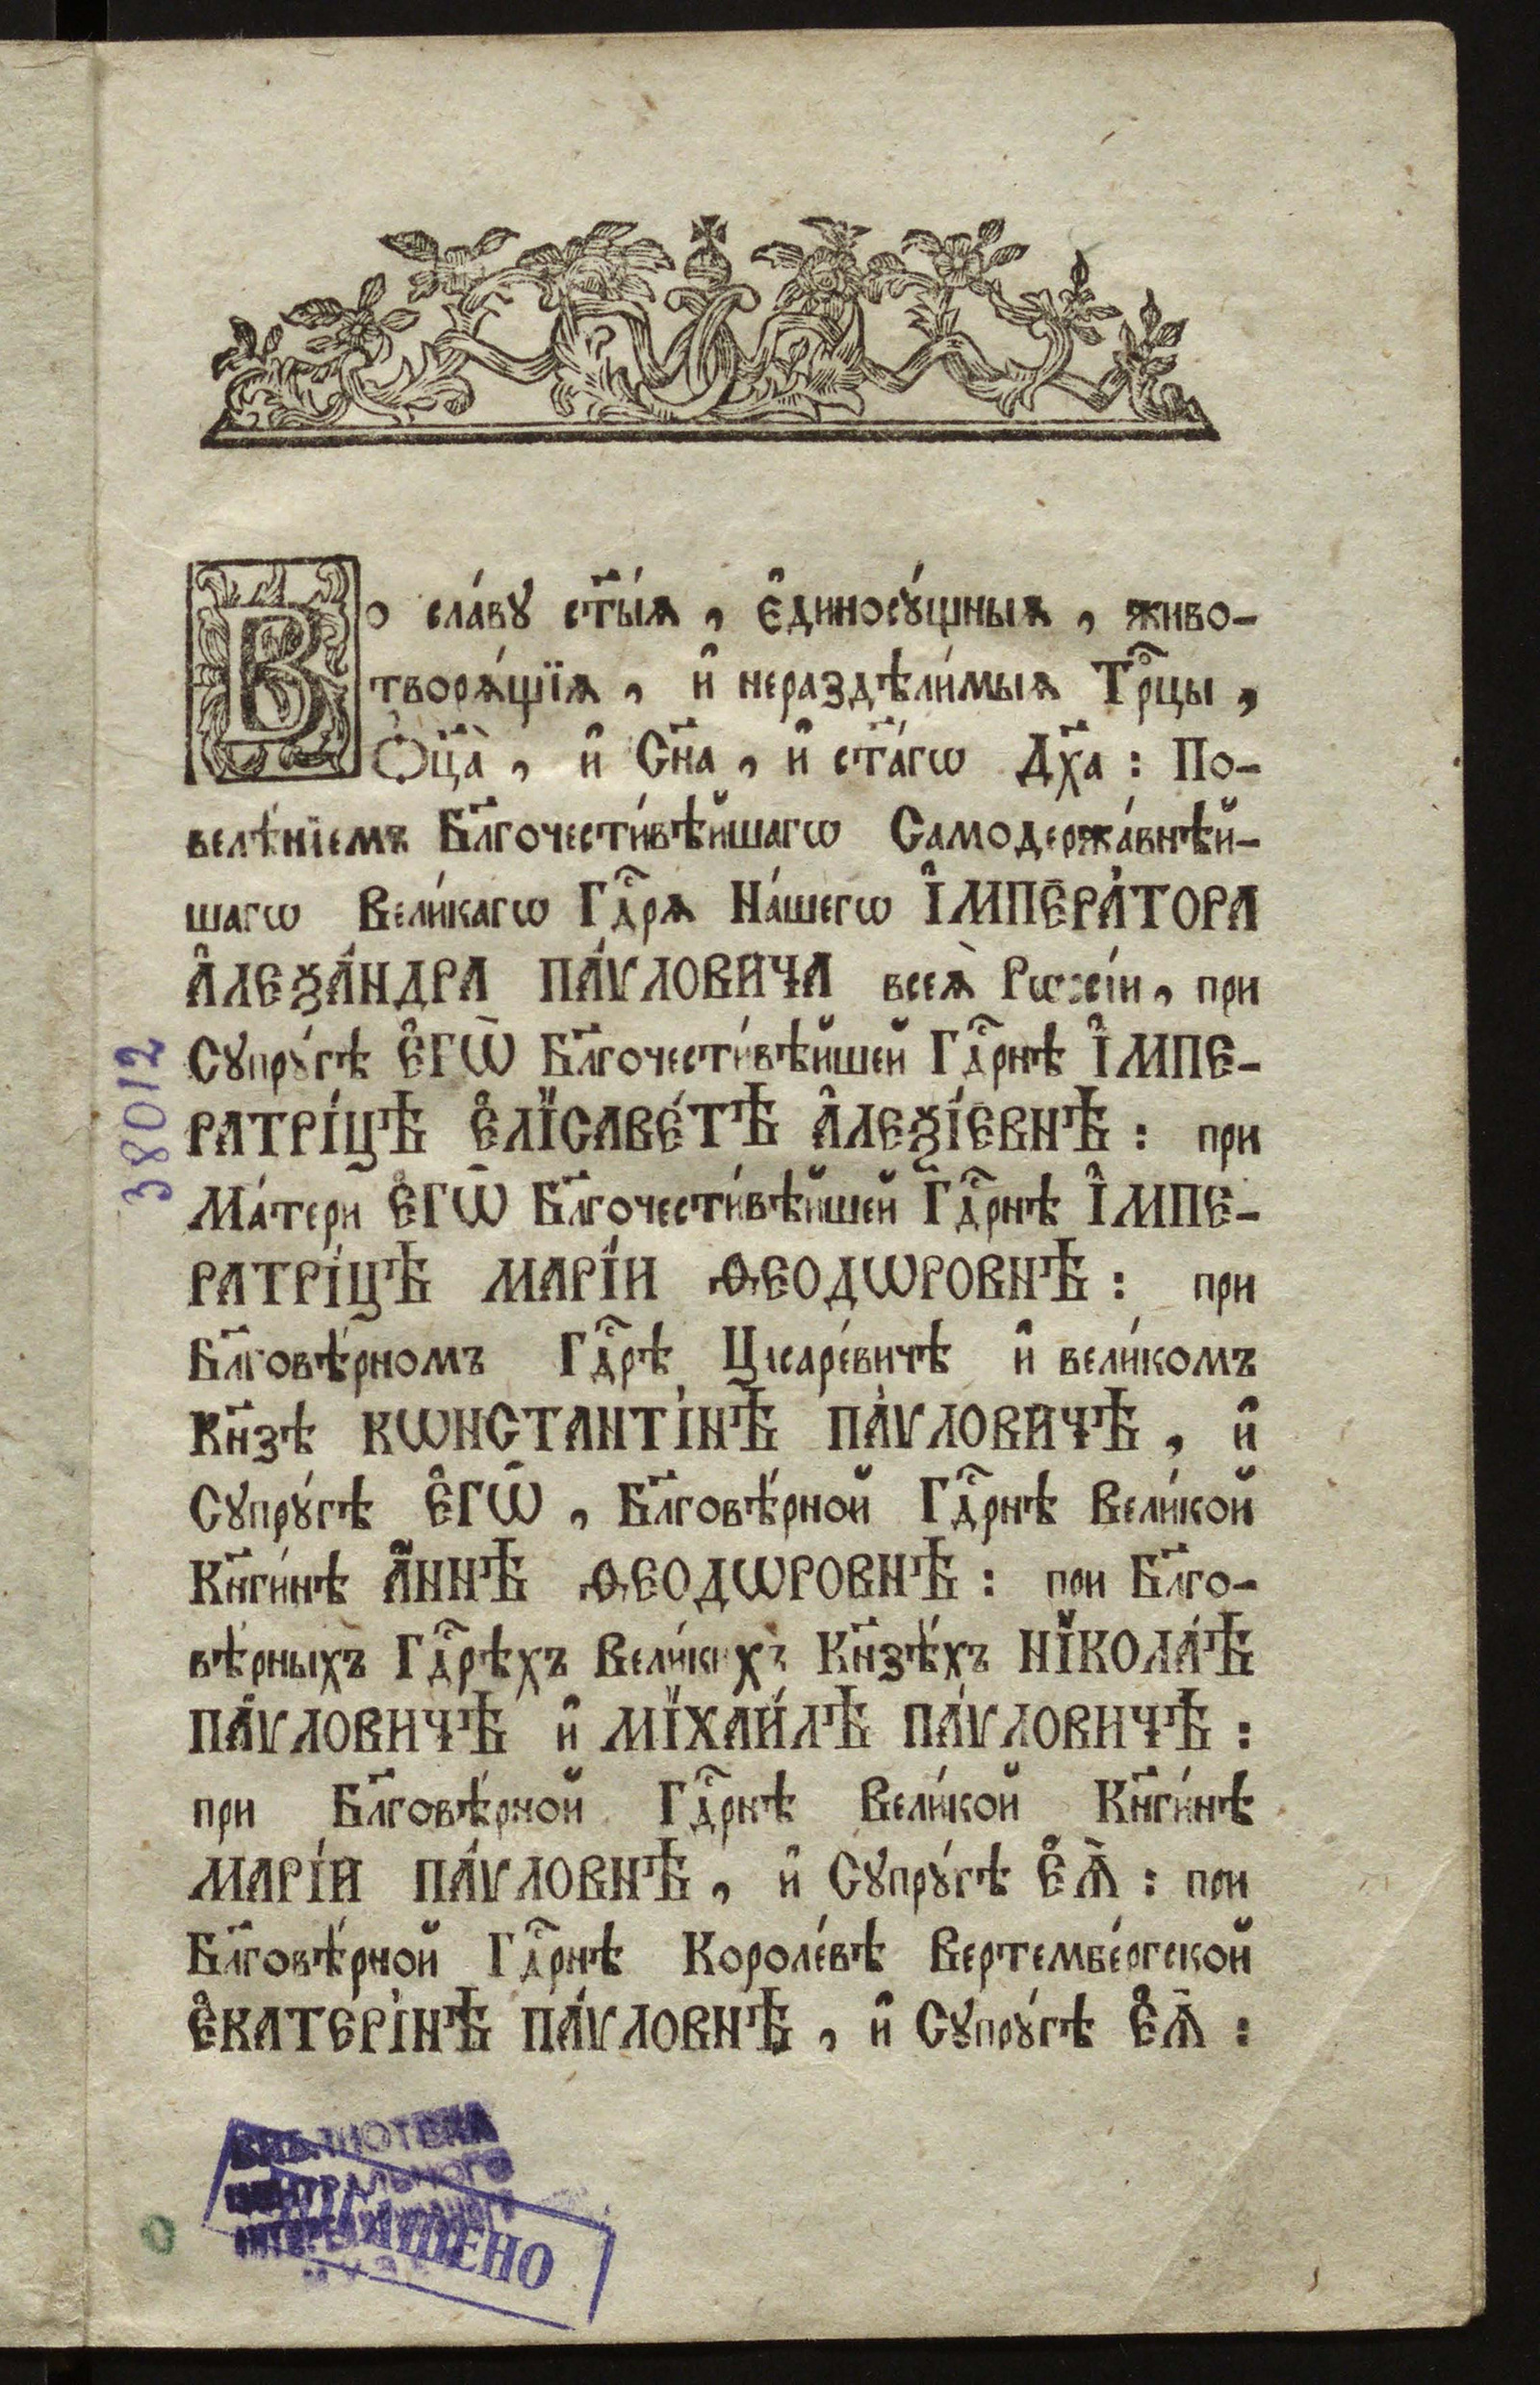 Во сла́вꙋ ст҃ы́ѧ, є҆динисꙋ́щныѧ, живо-
творѧ́щїѧ, и҆ нераздѣли́мыѧ Трⷪ҇цы,
Ѻ҆ц҃а̀, и҆ Сн҃а, и҆ ст҃а́гѡ Дх҃а: По-
велѣ́нїемъ Бл҃гочести́вѣйшагѡ Самодержа́внѣй-
шагѡ Вели́кагѡ Гдⷭ҇рѧ На́шегѡ І҆МПЕРА́ТОРА
А҆ЛЕѮА́НДРА ПА́ѴЛОВИЧА всеѧ̀ Рѡссі́и, при
Сꙋпрꙋ́гѣ Є҆ГѠ̀ Бл҃гочести́вѣйшей Гдⷭ҇рнѣ І҆МПЕ-
РАТРІ́ЦѢ Є҆ЛІСАВЕ́ТѢ А҆ЛЕѮІ́ЕВНѢ: при
Ма́тери Є҆ГѠ̀ Бл҃гочести́вѣйшей Гдⷭ҇рнѣ І҆МПЕ-
РАТРІ́ЦѢ МАРІ́И ѲЕОДѠРОВНѢ: при
Бл҃говѣ́рномъ Гдⷭ҇рѣ Цесаре́вичѣ и҆ вели́комъ
Кн҃зѣ КѠНСТАНТІ́НѢ ПА́ѴЛОВИЧѢ, и҆
Сꙋпрꙋ́гѣ Є҆ГѠ̀, Бл҃говѣ́рной Гдⷭ҇рнѣ Вели́кой
Кн҃ги́нѣ А҆́ННѢ ѲЕОДѠРОВНѢ: при Бл҃го-
вѣ́рныхъ Гдⷭ҇рѣхъ Вели́кихъ Кн҃зѣ́хъ НІКОЛА́Ѣ
ПА́ѴЛОВИЧѢ и҆ МІХАИ́ЛѢ ПА́ѴЛОВИЧѢ:
при Бл҃говѣ́рной Гдⷭ҇рнѣ Вели́кой Кн҃ги́нѣ
МАРІ́И ПА́ѴЛОВНѢ, и҆ Сꙋпрꙋ́гѣ Є҆Ѧ̀: при
Бл҃говѣ́рной Гдⷭ҇рнѣ Короле́вѣ Вертембе́ргской
Є҆КАТЕРІ́НѢ ПА́ѴЛОВНѢ, и҆ Сꙋпрꙋ́гѣ Є҆Ѧ̀:
38012
БИБЛИОТЕКА
ЦЕНТРАЛЬНОГО